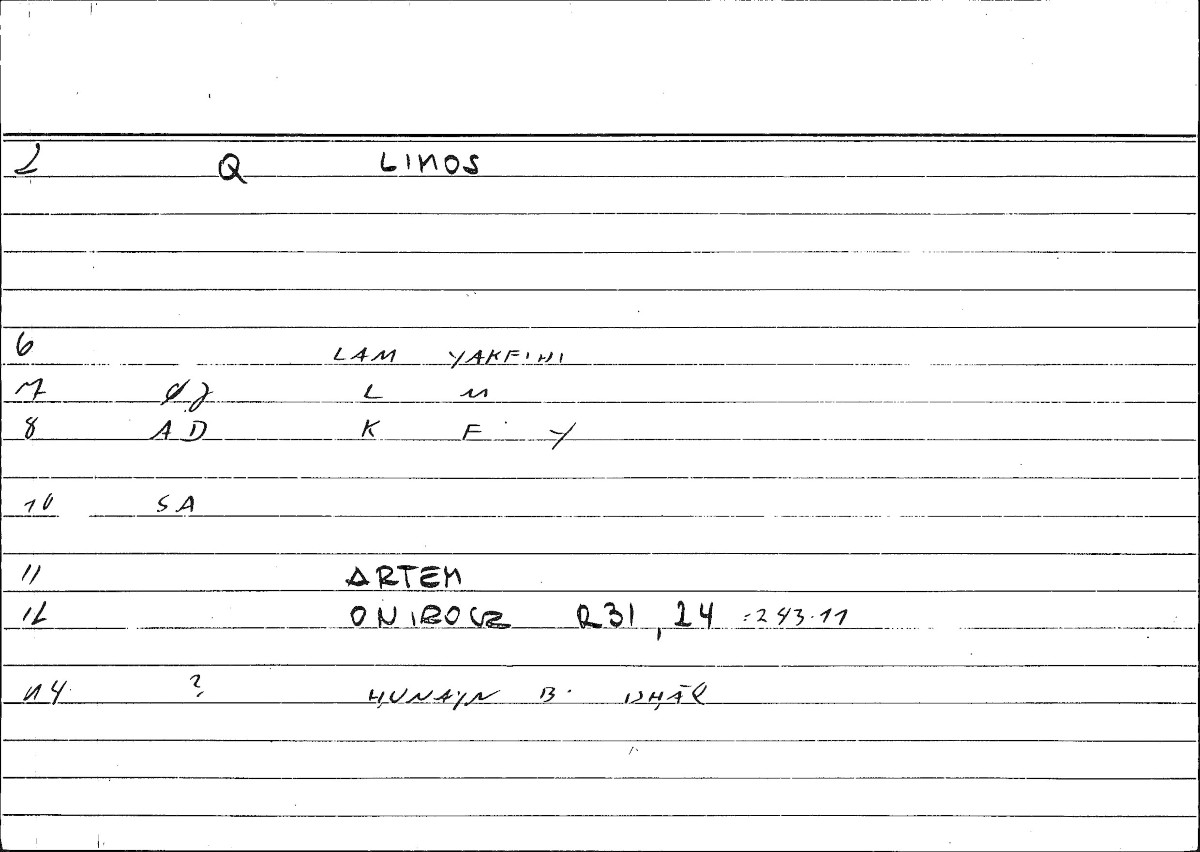 2 Q LIMOS
6 LAM YAKFINI
7 L M
8 AD K F Y
10 SA
11 ARTEM
12 ONIROCR 231, 24 = 243.11
14 ? ḤUNAYN B. ISḤĀQ